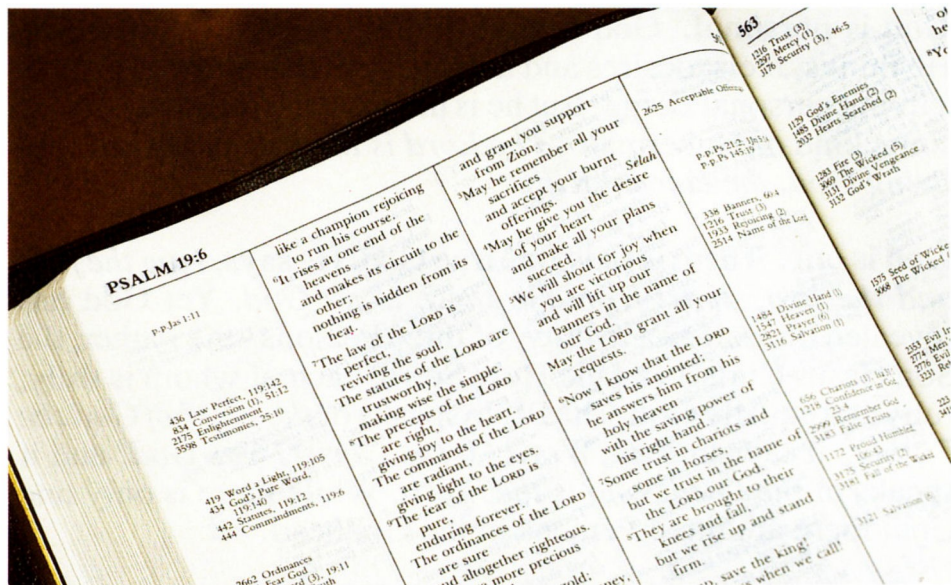 PSALM 19:6
p-p,Jas 1:11
436 Law Perfect, 119:142
834 Conversion (1), 51:12
2175 Enlightenment
3598 Testimonies, 25:10
419 Word a Light, 119:105
434 God's Pure Word,
119:140
442 Statutes, 119:12
444 Commandments, 119:6
2662 Ordinances
Fear God
(3), 19:11
like a champion rejoicing
to run his course.
⁶It rises at one end of the
heavens
and makes its circuit to the
other;
nothing is hidden from its
heat.
⁷The law of the LORD is
perfect,
reviving the soul.
The statutes of the LORD are
trustworthy,
making wise the simple.
⁸The precepts of the LORD
are right,
giving joy to the heart.
The commands of the LORD
are radiant,
giving light to the eyes.
⁹The fear of the LORD is
pure,
enduring forever.
The ordinances of the LORD
are sure
and altogether righteous.
more precious
gold;
and grant you support
from Zion.
³May he remember all your
sacrifices
and accept your burnt
offerings. Selah
⁴May he give you the desire
of your heart
and make all your plans
succeed.
⁵We will shout for joy when
you are victorious
and will lift up our
banners in the name of
our God.
May the LORD grant all your
requests.
⁶Now I know that the LORD
saves his anointed;
he answers him from his
holy heaven
with the saving power of
his right hand.
⁷Some trust in chariots and
some in horses,
but we trust in the name of
the LORD our God.
⁸They are brought to their
knees and fall,
but we rise up and stand
firm.
save the king!
when we call!
2625 Acceptable Offering
p-p,Ps 21:2;
p-p,Ps 145:19
338 Banners, 60:4
1216 Trust (3)
1933 Rejoicing (2)
2514 Name of the Lord
1484 Divine Hand
1547 Heaven (1)
2821 Prayer (6)
3116 Salvation (1)
656 Chariots (1),
1218 Confidence in God,
23:4
2999 Remember God,
3183 False Trusts
1172 Proud Humbled,
106:43
3175 Security (2)
3181 Fall of the Wicked
3121 Salvation (6)
563
1216 Trust (3)
2297 Mercy (1)
3176 Security (3), 46:5
1129 God's Enemies
1485 Divine Hand (2)
2032 Hearts Searched (2)
1283 Fire (3)
3069 The Wicked (5)
3131 Divine Vengeance
3132 God's Wrath
1575 Seed of
3068 The Wicked
2553 Evil
2774
2776
3231
he